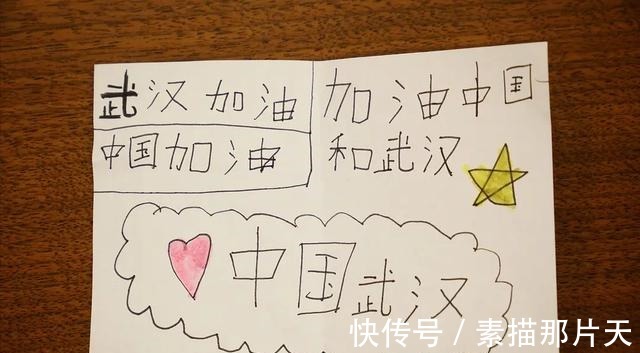 武汉加油
中国加油
加油中国
和武汉
中国武汉
快传号 / 素描那片天